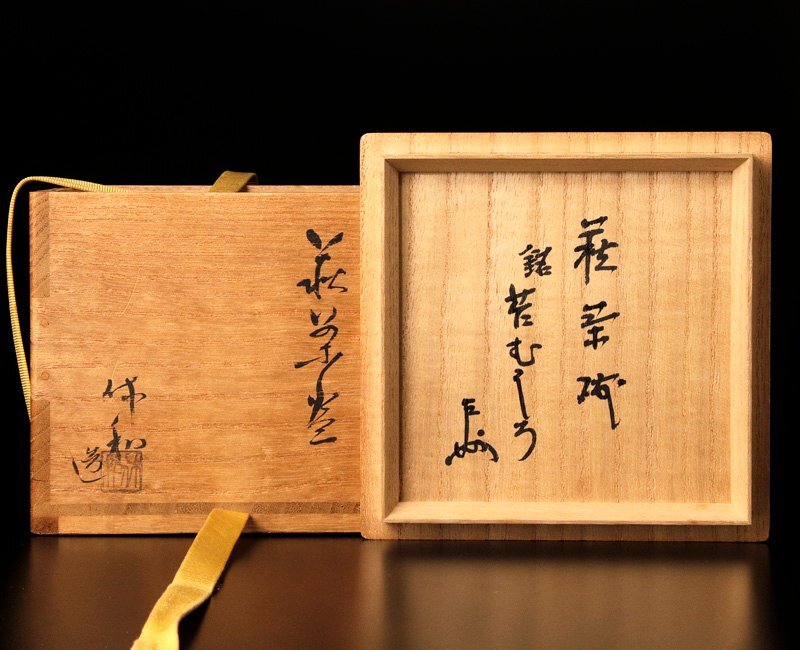 萩茶碗
銘 苔むしろ
萩茶盌
休和
造